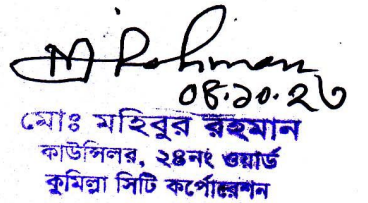 M Rahman
০৪.১০.২৩
মোঃ মহিবুর রহমান
কাউন্সিলর, ২৪নং ওয়ার্ড
কুমিল্লা সিটি কর্পোরেশন